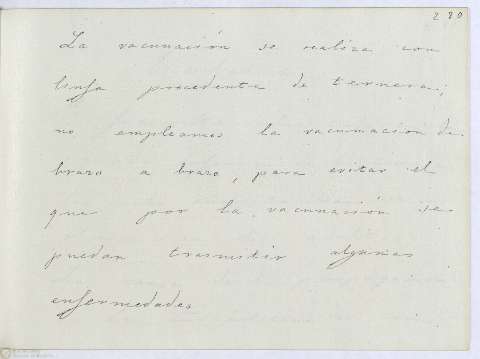 280
La vacunación se realiza con
linfa procedente de ternera;
no empleamos la vacunación de
brazo a brazo, para evitar el
que por la vacunación se
puedan trasmitir algunas
enfermedades